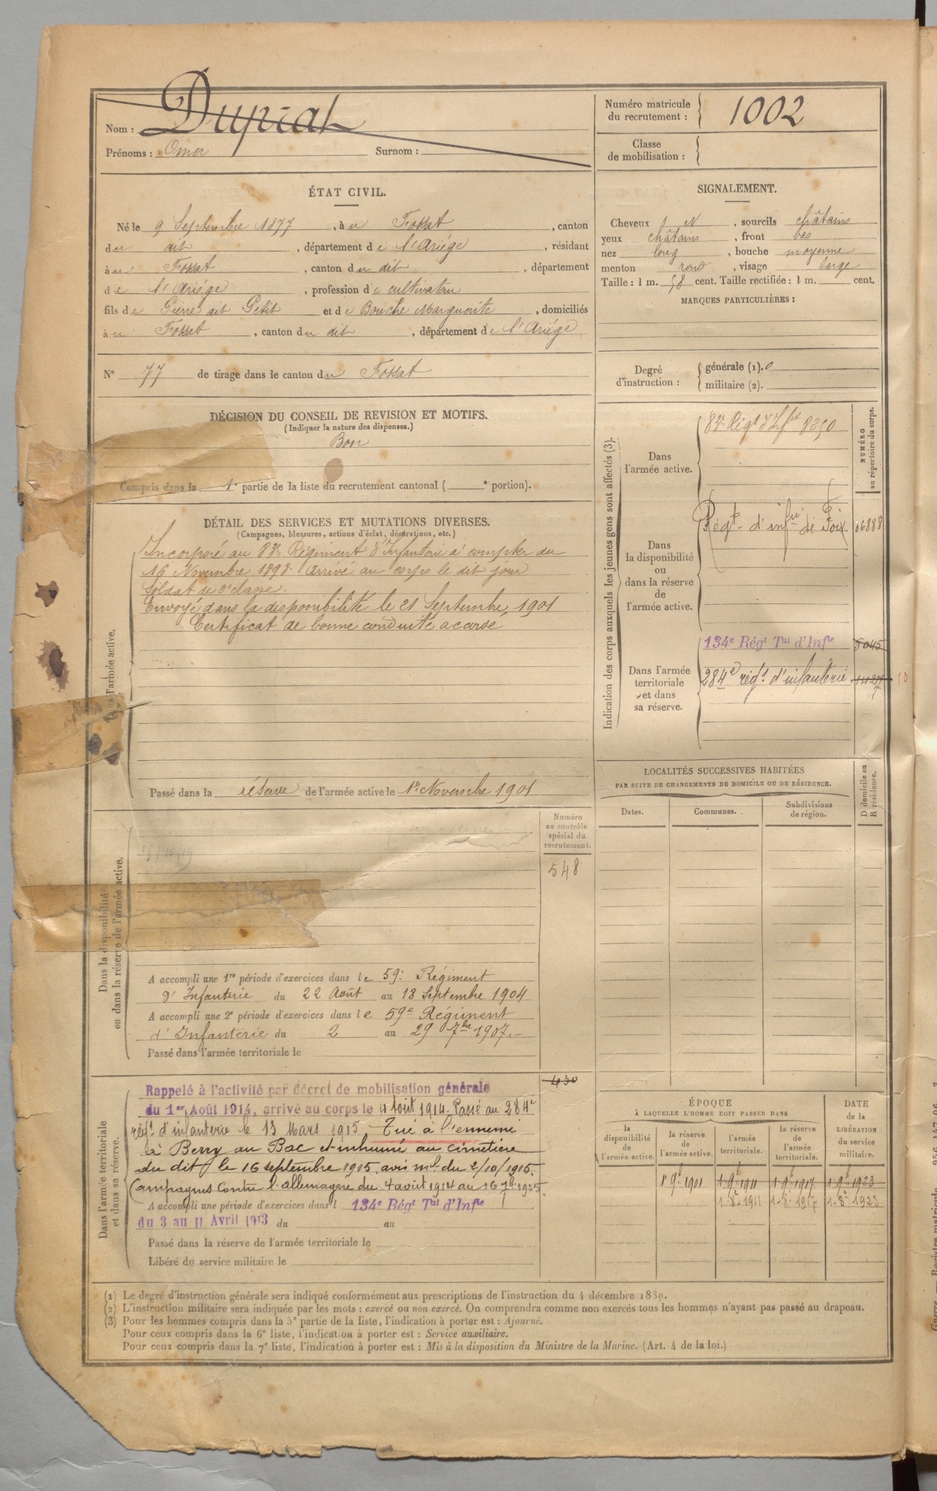 Nom : Duprat
Prénoms : Omer Surnom :
Numéro matricule du recrutement : 1002
Classe de mobilisation :
ÉTAT CIVIL.
Né le 9 Septembre 1877, à u Fossat, canton
d u dit, département d e l'Ariège, résidant
à u Fossat, canton d u dit, département
d e l'Ariège, profession d e cultivateur
fils d e Pierre dit Petit et d e Bouche Marguerite, domiciliés
à u Fossat, canton d u dit, département d e l'Ariège
N° 77 de tirage dans le canton d u Fossat
SIGNALEMENT.
Cheveux, sourcils châtains
yeux châtains, front bas
nez long, bouche moyenne
menton rond, visage large
Taille : 1 m. 58 cent. Taille rectifiée : 1 m. cent.
MARQUES PARTICULIÈRES :
Degré d'instruction : générale (1). 0
militaire (2).
DÉCISION DU CONSEIL DE REVISION ET MOTIFS.
(Indiquer la nature des dispenses.)
Bon
Compris dans la 1e partie de la liste du recrutement cantonal ( e portion).
DÉTAIL DES SERVICES ET MUTATIONS DIVERSES.
(Campagnes, blessures, actions d'éclat, décorations, etc.)
Incorporé au Régiment d'Infanterie à compter du
16 Novembre 1898. Arrivé au corps le dit jour
Soldat de 2e classe.
Envoyé dans la disponibilité le 21 Septembre 1901
Certificat de bonne conduite accordé
l'armée active.
Passé dans la réserve de l'armée active le 1er Novembre 1901
Indication des corps auxquels les jeunes gens sont affectés (3).
NUMÉRO au répertoire du corps.
Dans l'armée active.
Régt d'Infie
Dans la disponibilité ou dans la réserve de l'armée active.
Régt d'infie de Foix
Dans l'armée territoriale et dans sa réserve.
134e Régt Tal d'Infie
284e régt d'infanterie
LOCALITÉS SUCCESSIVES HABITÉES
PAR SUITE DE CHANGEMENTS DE DOMICILE OU DE RÉSIDENCE.
Dates. Communes. Subdivisions de région. D domicile ou R résidence.
Dans la disponibilité ou dans la réserve de l'armée active.
Numéro au contrôle spécial du recrutement.
548
A accompli une 1re période d'exercices dans l e 59e Régiment
d'Infanterie du 22 Août au 18 Septembre 1904
A accompli une 2e période d'exercices dans l e 59e Régiment
d'Infanterie du 2 au 29 7bre 1907.
Passé dans l'armée territoriale le
Dans l'armée territoriale et dans sa réserve.
430
Rappelé à l'activité par décret de mobilisation générale
du 1er Août 1914, arrivé au corps le 4 août 1914. Passé au 284e
régt d'infanterie le 13 Mars 1915. Tué à l'ennemi
à Berry au Bac et inhumé au cimetière
du dit, le 16 septembre 1915, avis mel du 2/10/1915.
Campagnes Contre l'Allemagne du 4 août 1914 au 16 7bre 1915.
A accompli une période d'exercices dans l 134e Régt Tal d'Infie
du 3 au 11 Avril 1913 du au
Passé dans la réserve de l'armée territoriale le
Libéré du service militaire le
ÉPOQUE
À LAQUELLE L'HOMME DOIT PASSER DANS
la disponibilité de l'armée active. la réserve de l'armée active. l'armée territoriale. la réserve de l'armée territoriale.
DATE de la LIBÉRATION du service militaire.
1 9e 1901 1 9e 1911 1 9e 1917 1 9e 1923
1 8e 1911 1 8e 1917 1 8e 1923
(1) Le degré d'instruction générale sera indiqué conformément aux prescriptions de l'instruction du 4 décembre 1889.
(2) L'instruction militaire sera indiquée par les mots : exercé ou non exercé. On comprendra comme non exercés tous les hommes n'ayant pas passé au drapeau.
(3) Pour les hommes compris dans la 5e partie de la liste, l'indication à porter est : Ajourné.
Pour ceux compris dans la 6e liste, l'indication à porter est : Service auxiliaire.
Pour ceux compris dans la 7e liste, l'indication à porter est : Mis à la disposition du Ministre de la Marine. (Art. 4 de la loi.)